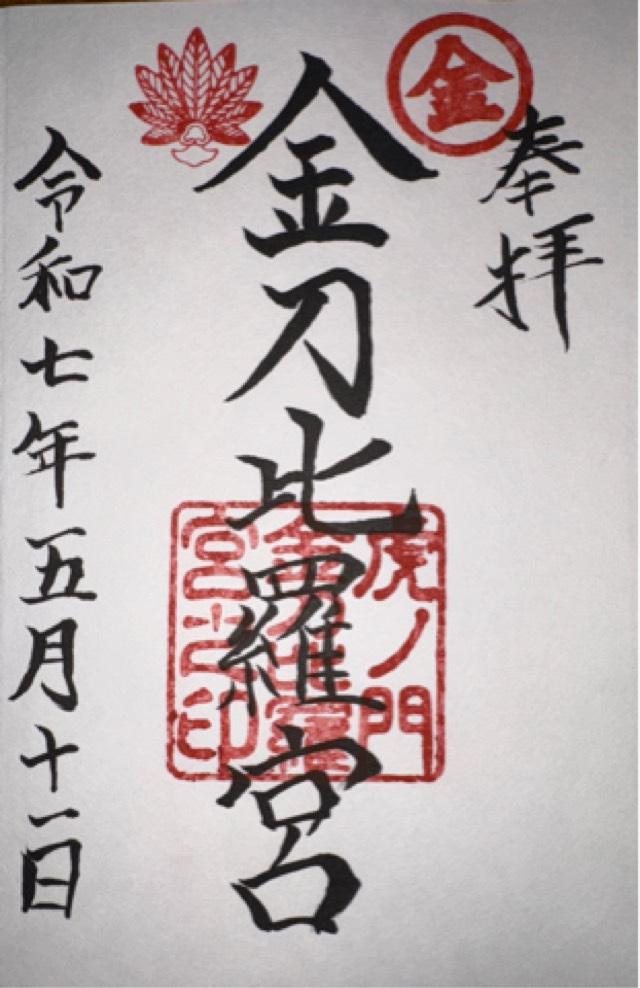 金
奉拝
金刀比羅宮
虎ノ門
金刀比羅
宮之印
令和七年五月十一日